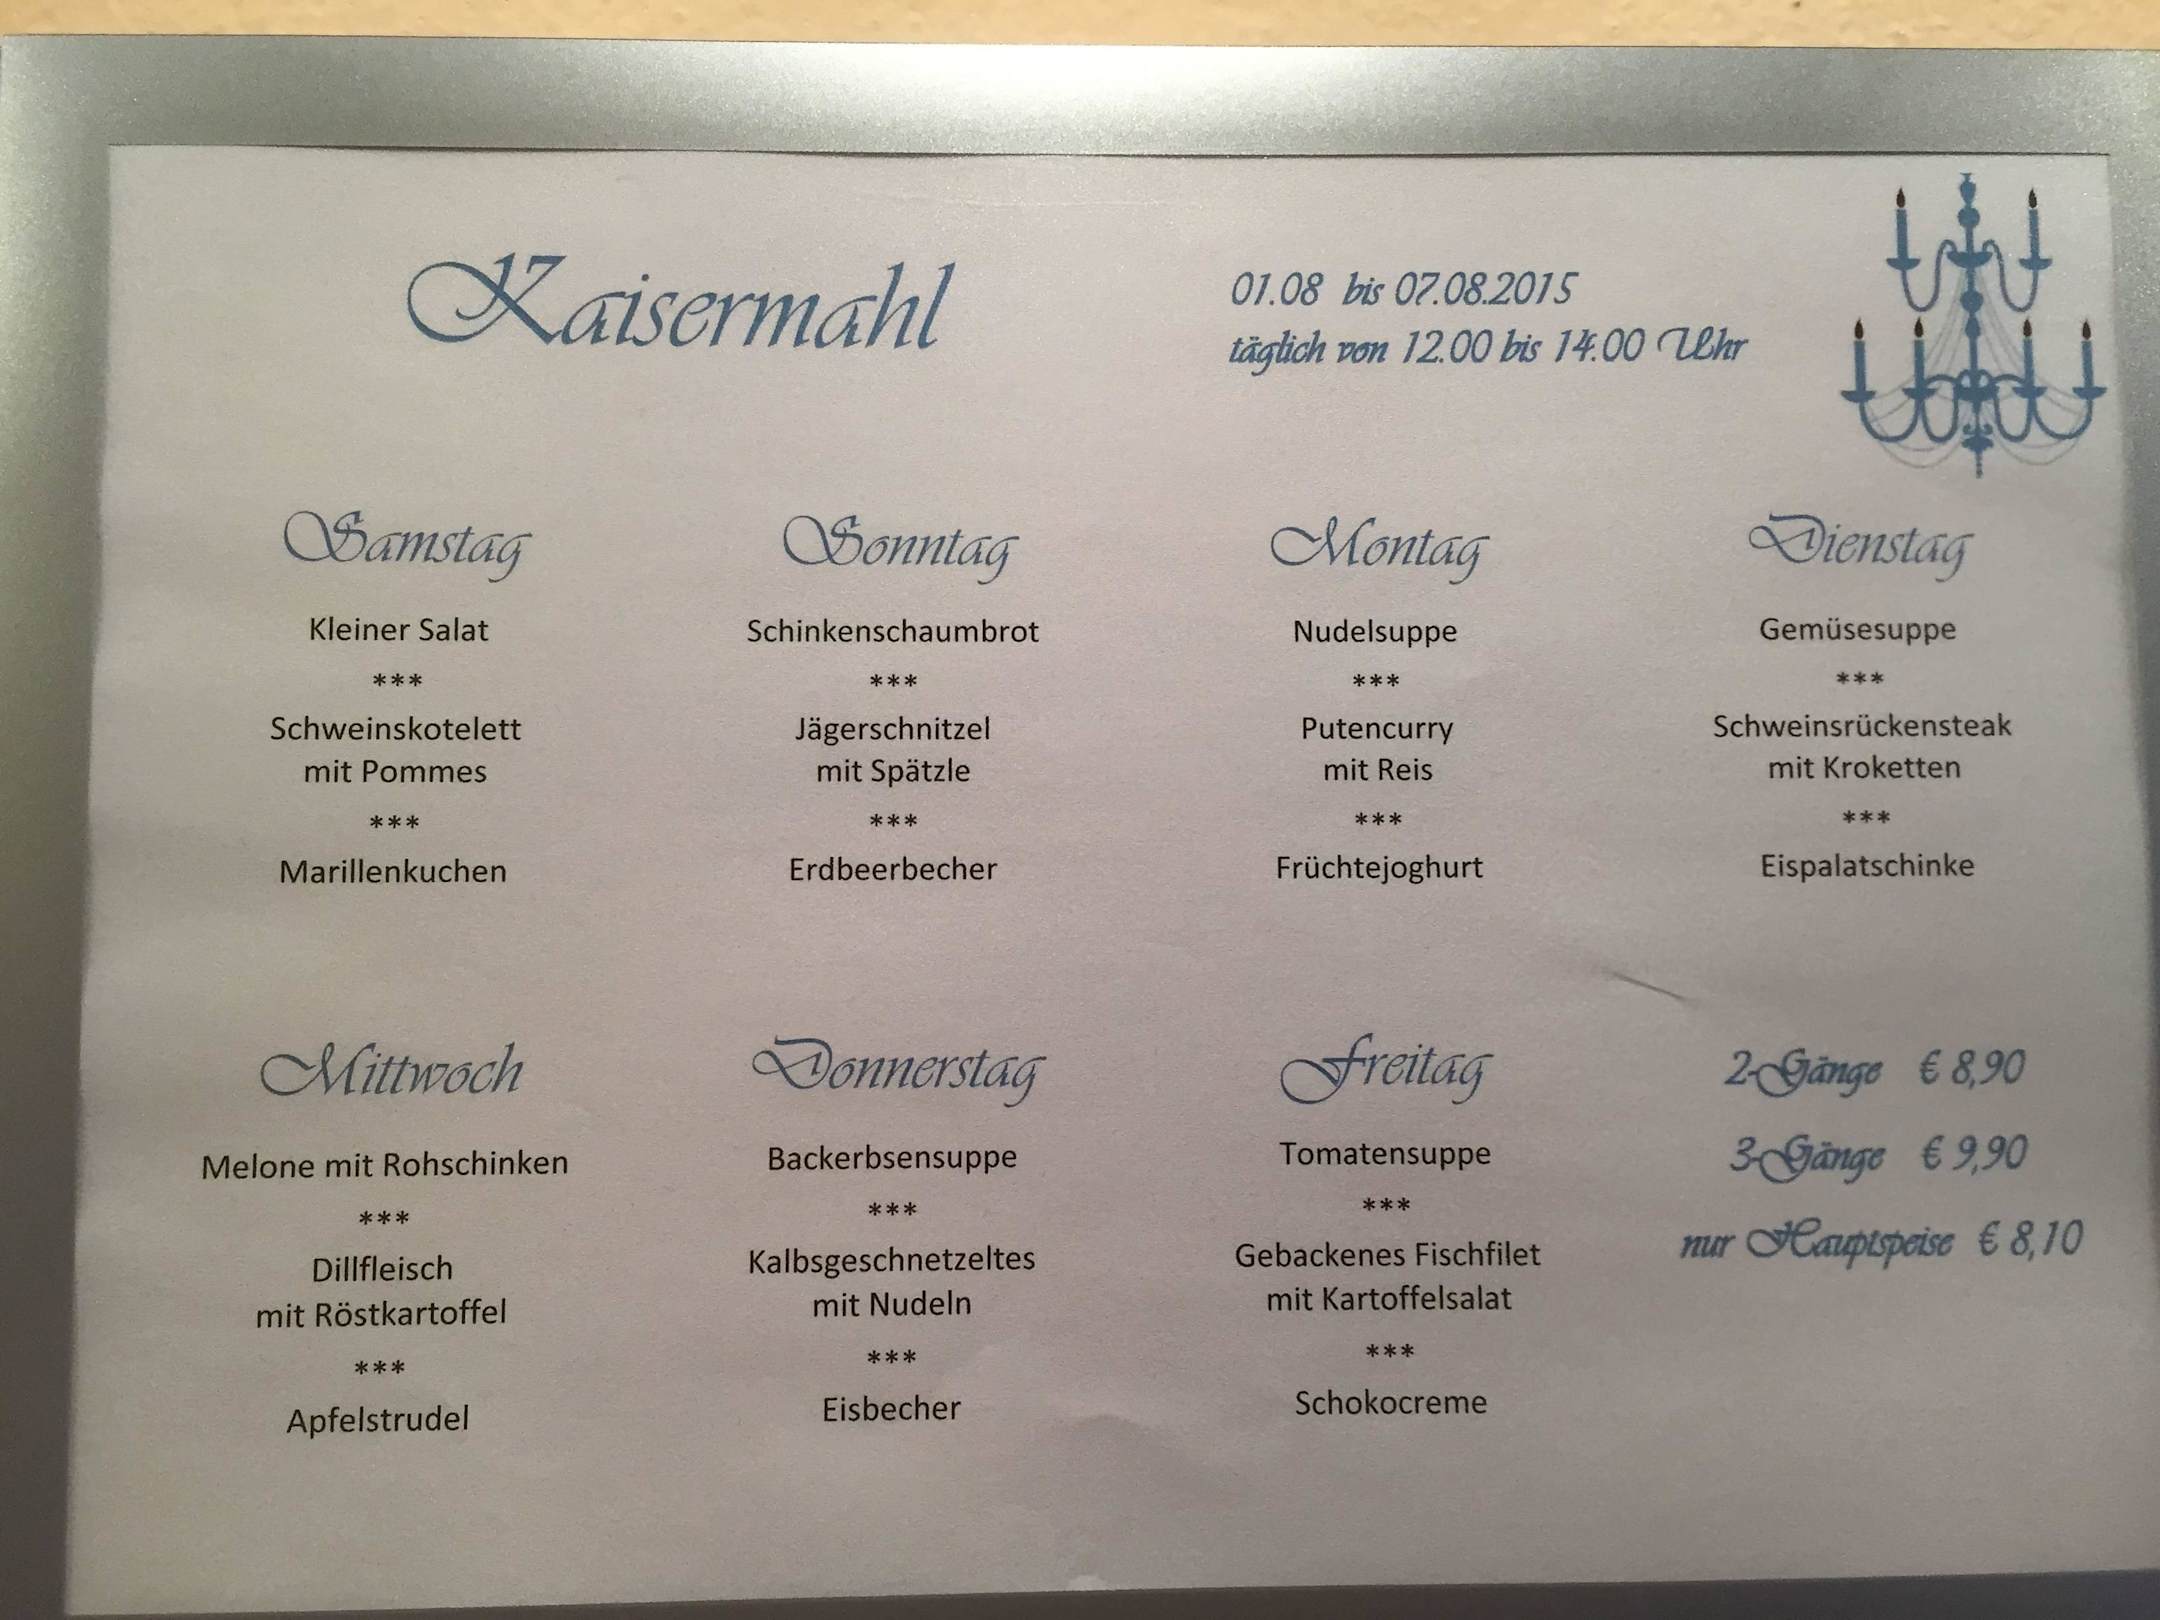 Kaisermahl
01.08 bis 07.08.2015
täglich von 12.00 bis 14.00 Uhr
Samstag
Kleiner Salat
***
Schweinskotelett
mit Pommes
***
Marillenkuchen
Sonntag
Schinkenschaumbrot
***
Jägerschnitzel
mit Spätzle
***
Erdbeerbecher
Montag
Nudelsuppe
***
Putencurry
mit Reis
***
Früchtejoghurt
Dienstag
Gemüsesuppe
***
Schweinsrückensteak
mit Kroketten
***
Eispalatschinke
Mittwoch
Melone mit Rohschinken
***
Dillfleisch
mit Röstkartoffel
***
Apfelstrudel
Donnerstag
Backerbsensuppe
***
Kalbsgeschnetzeltes
mit Nudeln
***
Eisbecher
Freitag
Tomatensuppe
***
Gebackenes Fischfilet
mit Kartoffelsalat
***
Schokocreme
2-Gänge € 8,90
3-Gänge € 9,90
nur Hauptspeise € 8,10